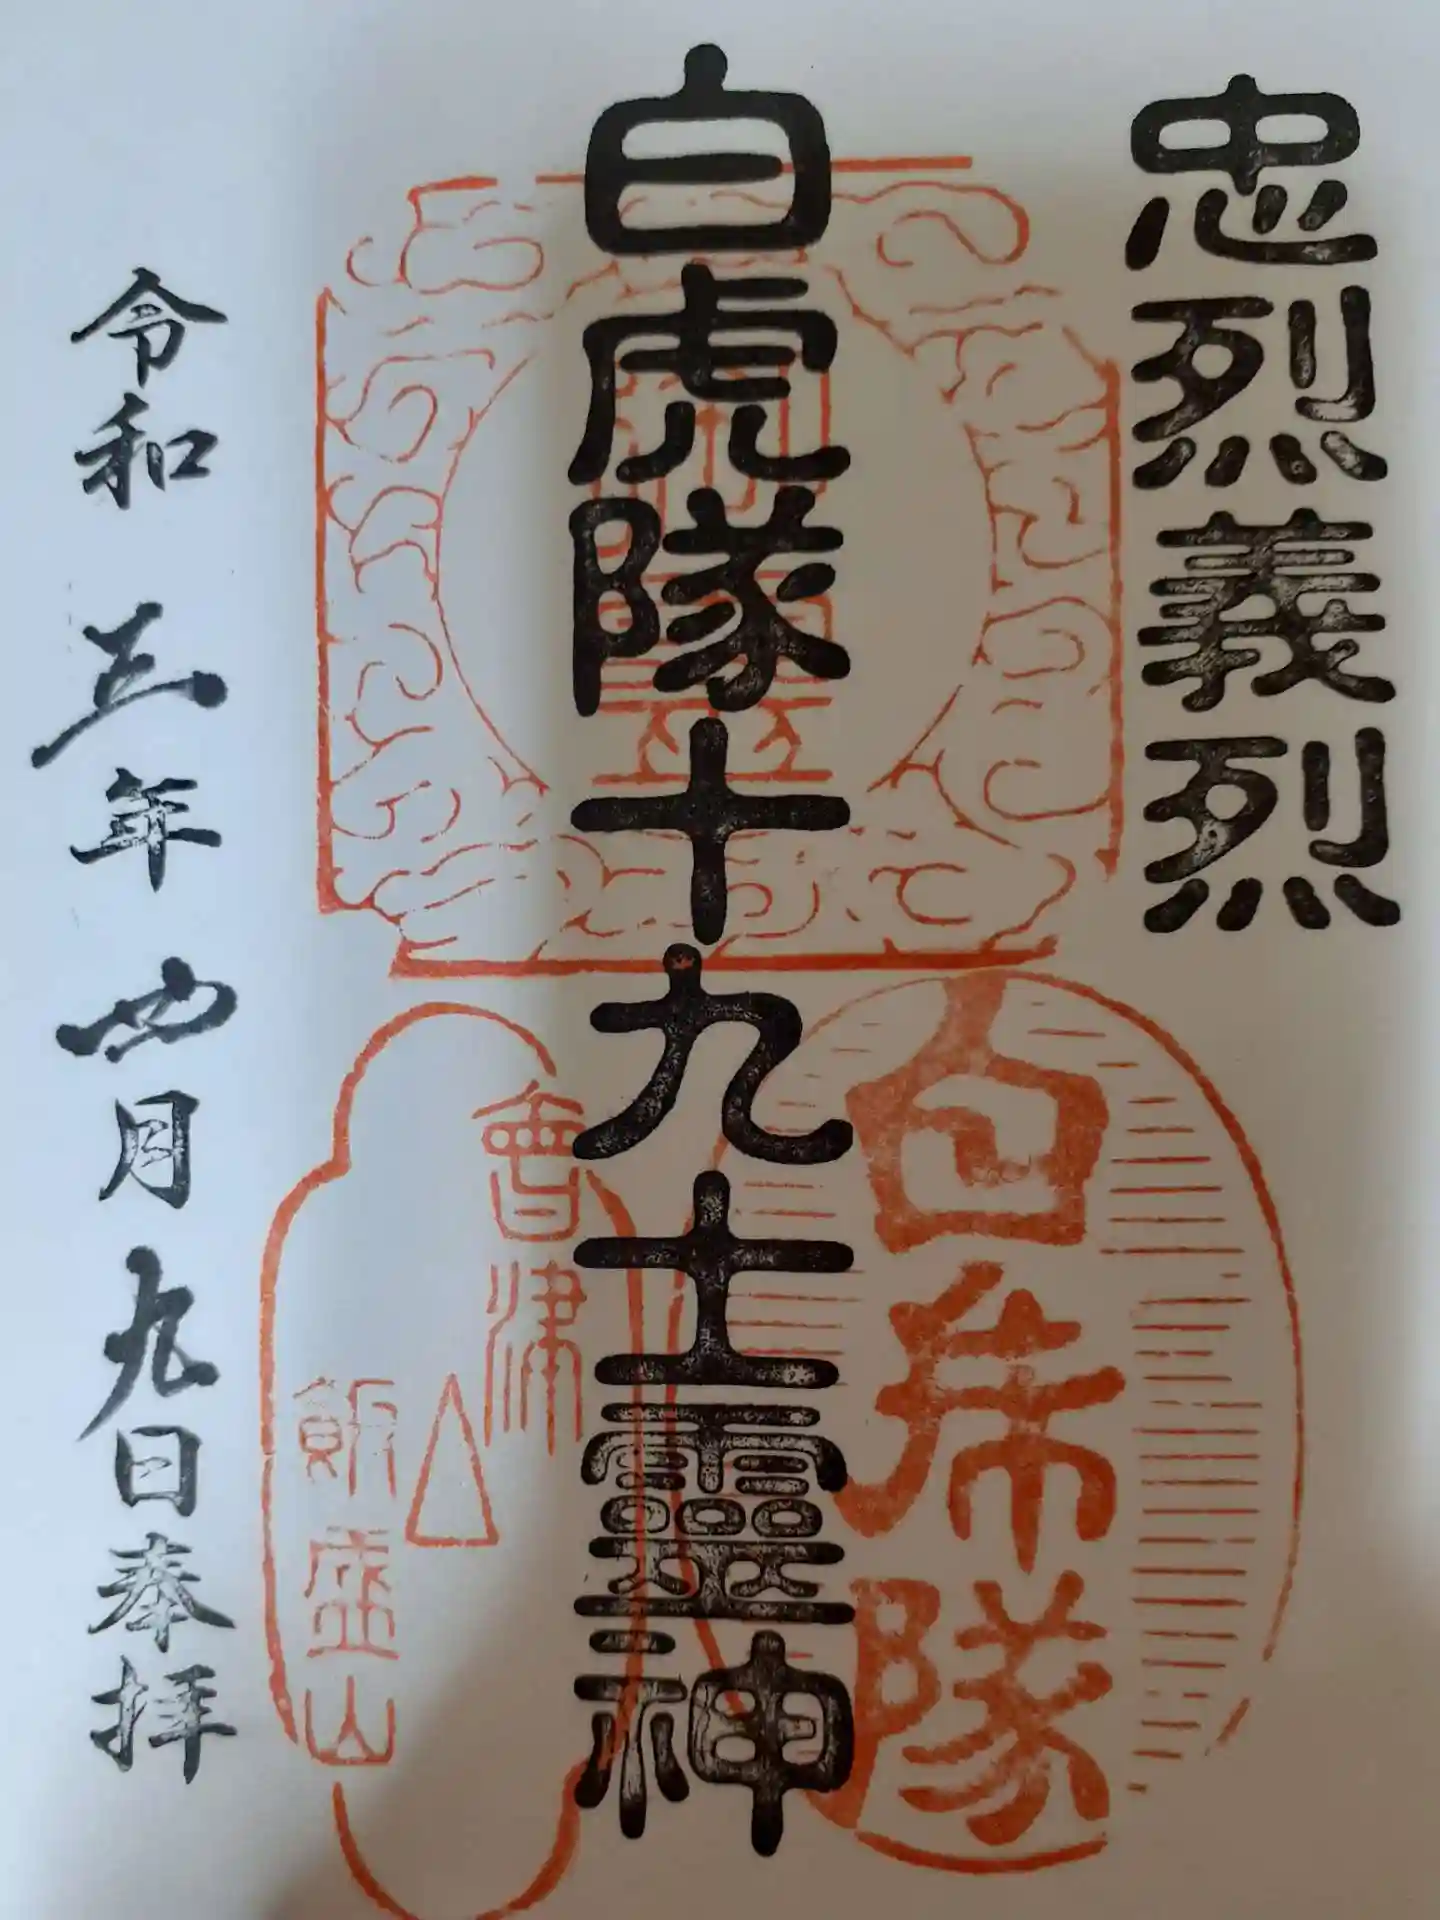 忠烈義烈
白虎隊十九士靈神
白虎隊
會津
飯盛山
令和五年四月九日奉拝